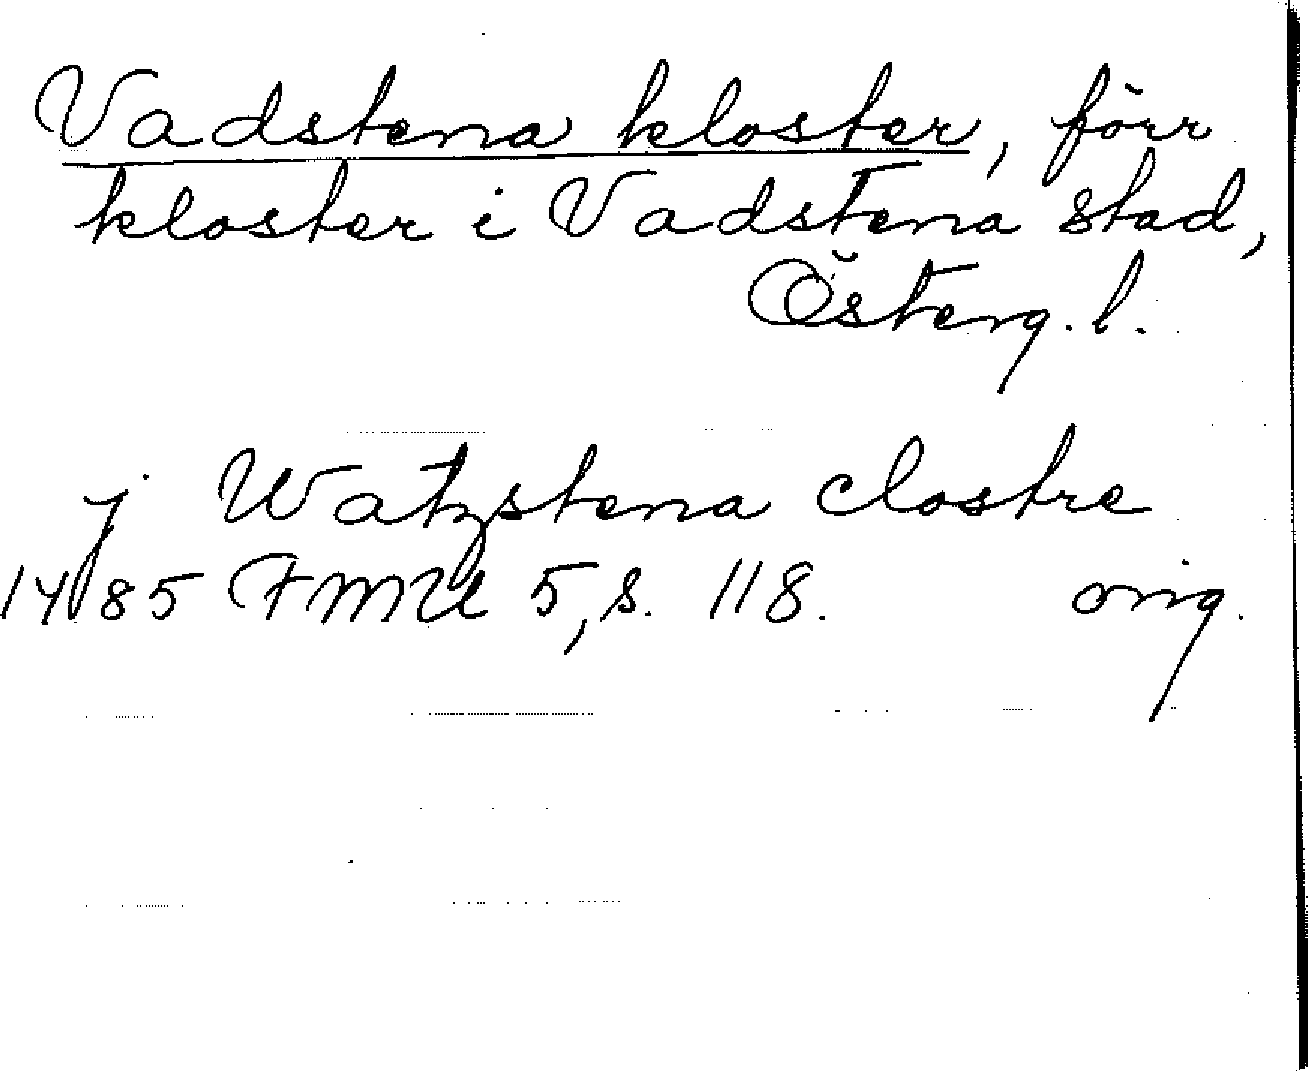 Vadstena kloster, förr
kloster i Vadstena stad,
Österg. l.
j Watzstena clostre
1485 FMU 5, s. 118. orig.